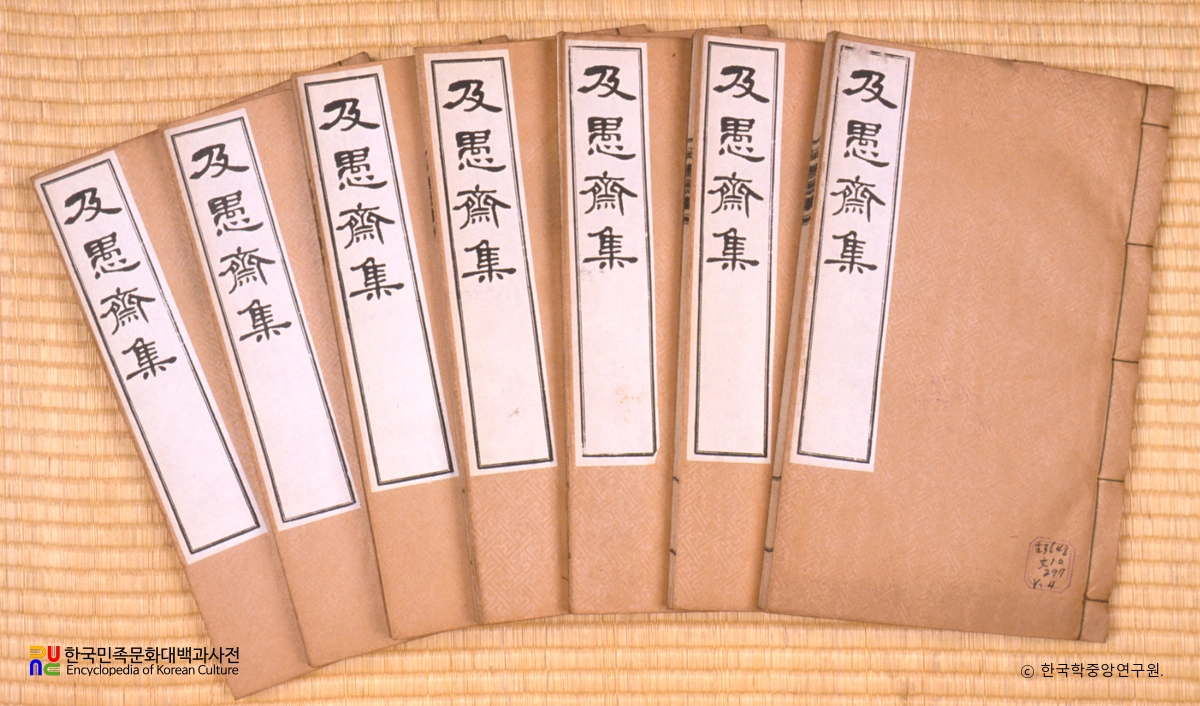 及愚齋集
及愚齋集
及愚齋集
及愚齋集
及愚齋集
及愚齋集
及愚齋集
한국민족문화대백과사전
Encyclopedia of Korean Culture
ⓒ 한국학중앙연구원.